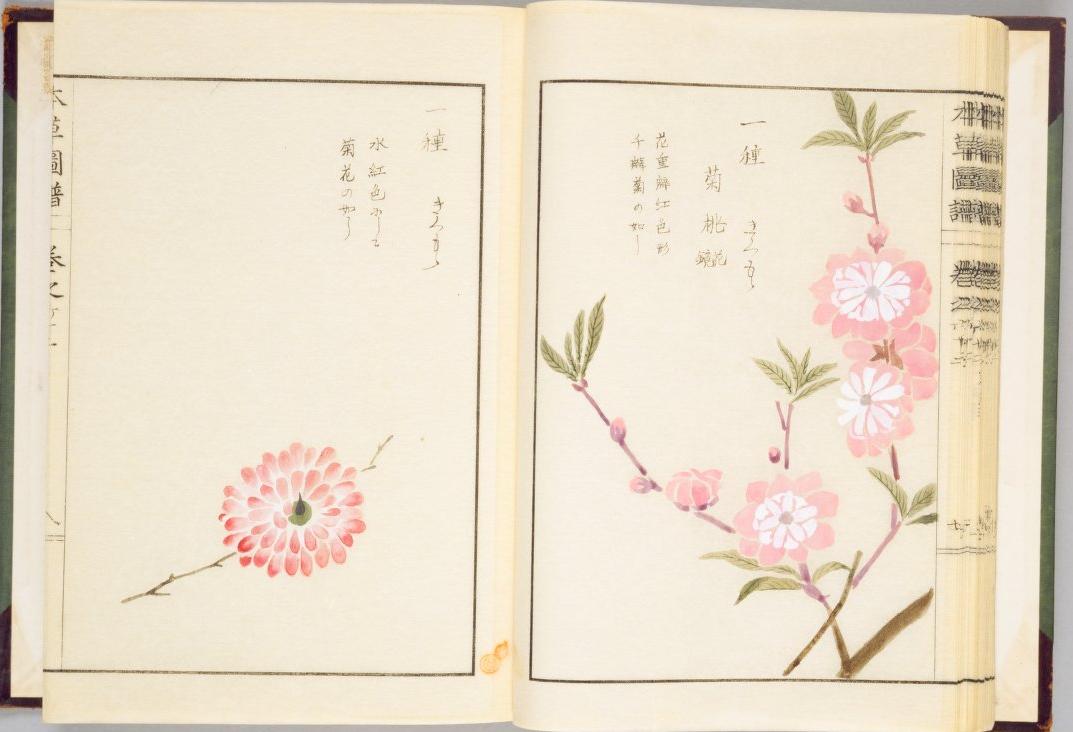 一種 きくもゝ
菊桃 花鏡
花重瓣紅色形
千瓣菊の如し
一種 きくもゝ
水紅色にして
菊花の如し
本草圖譜 卷之
本草圖譜 卷之